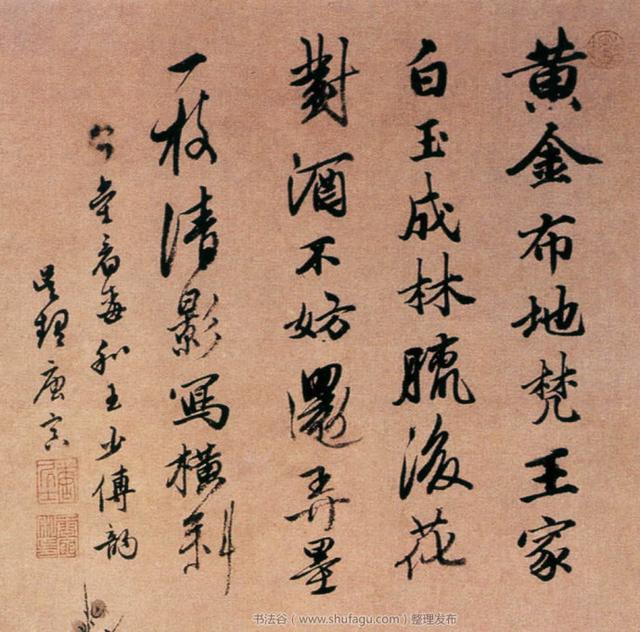 黄金布地梵王家
白玉成林臘後花
對酒不妨還弄墨
一枝清影寫橫斜
看梅和王少傅韵
吳趨唐寅
书法谷（www.shufagu.com）整理发布